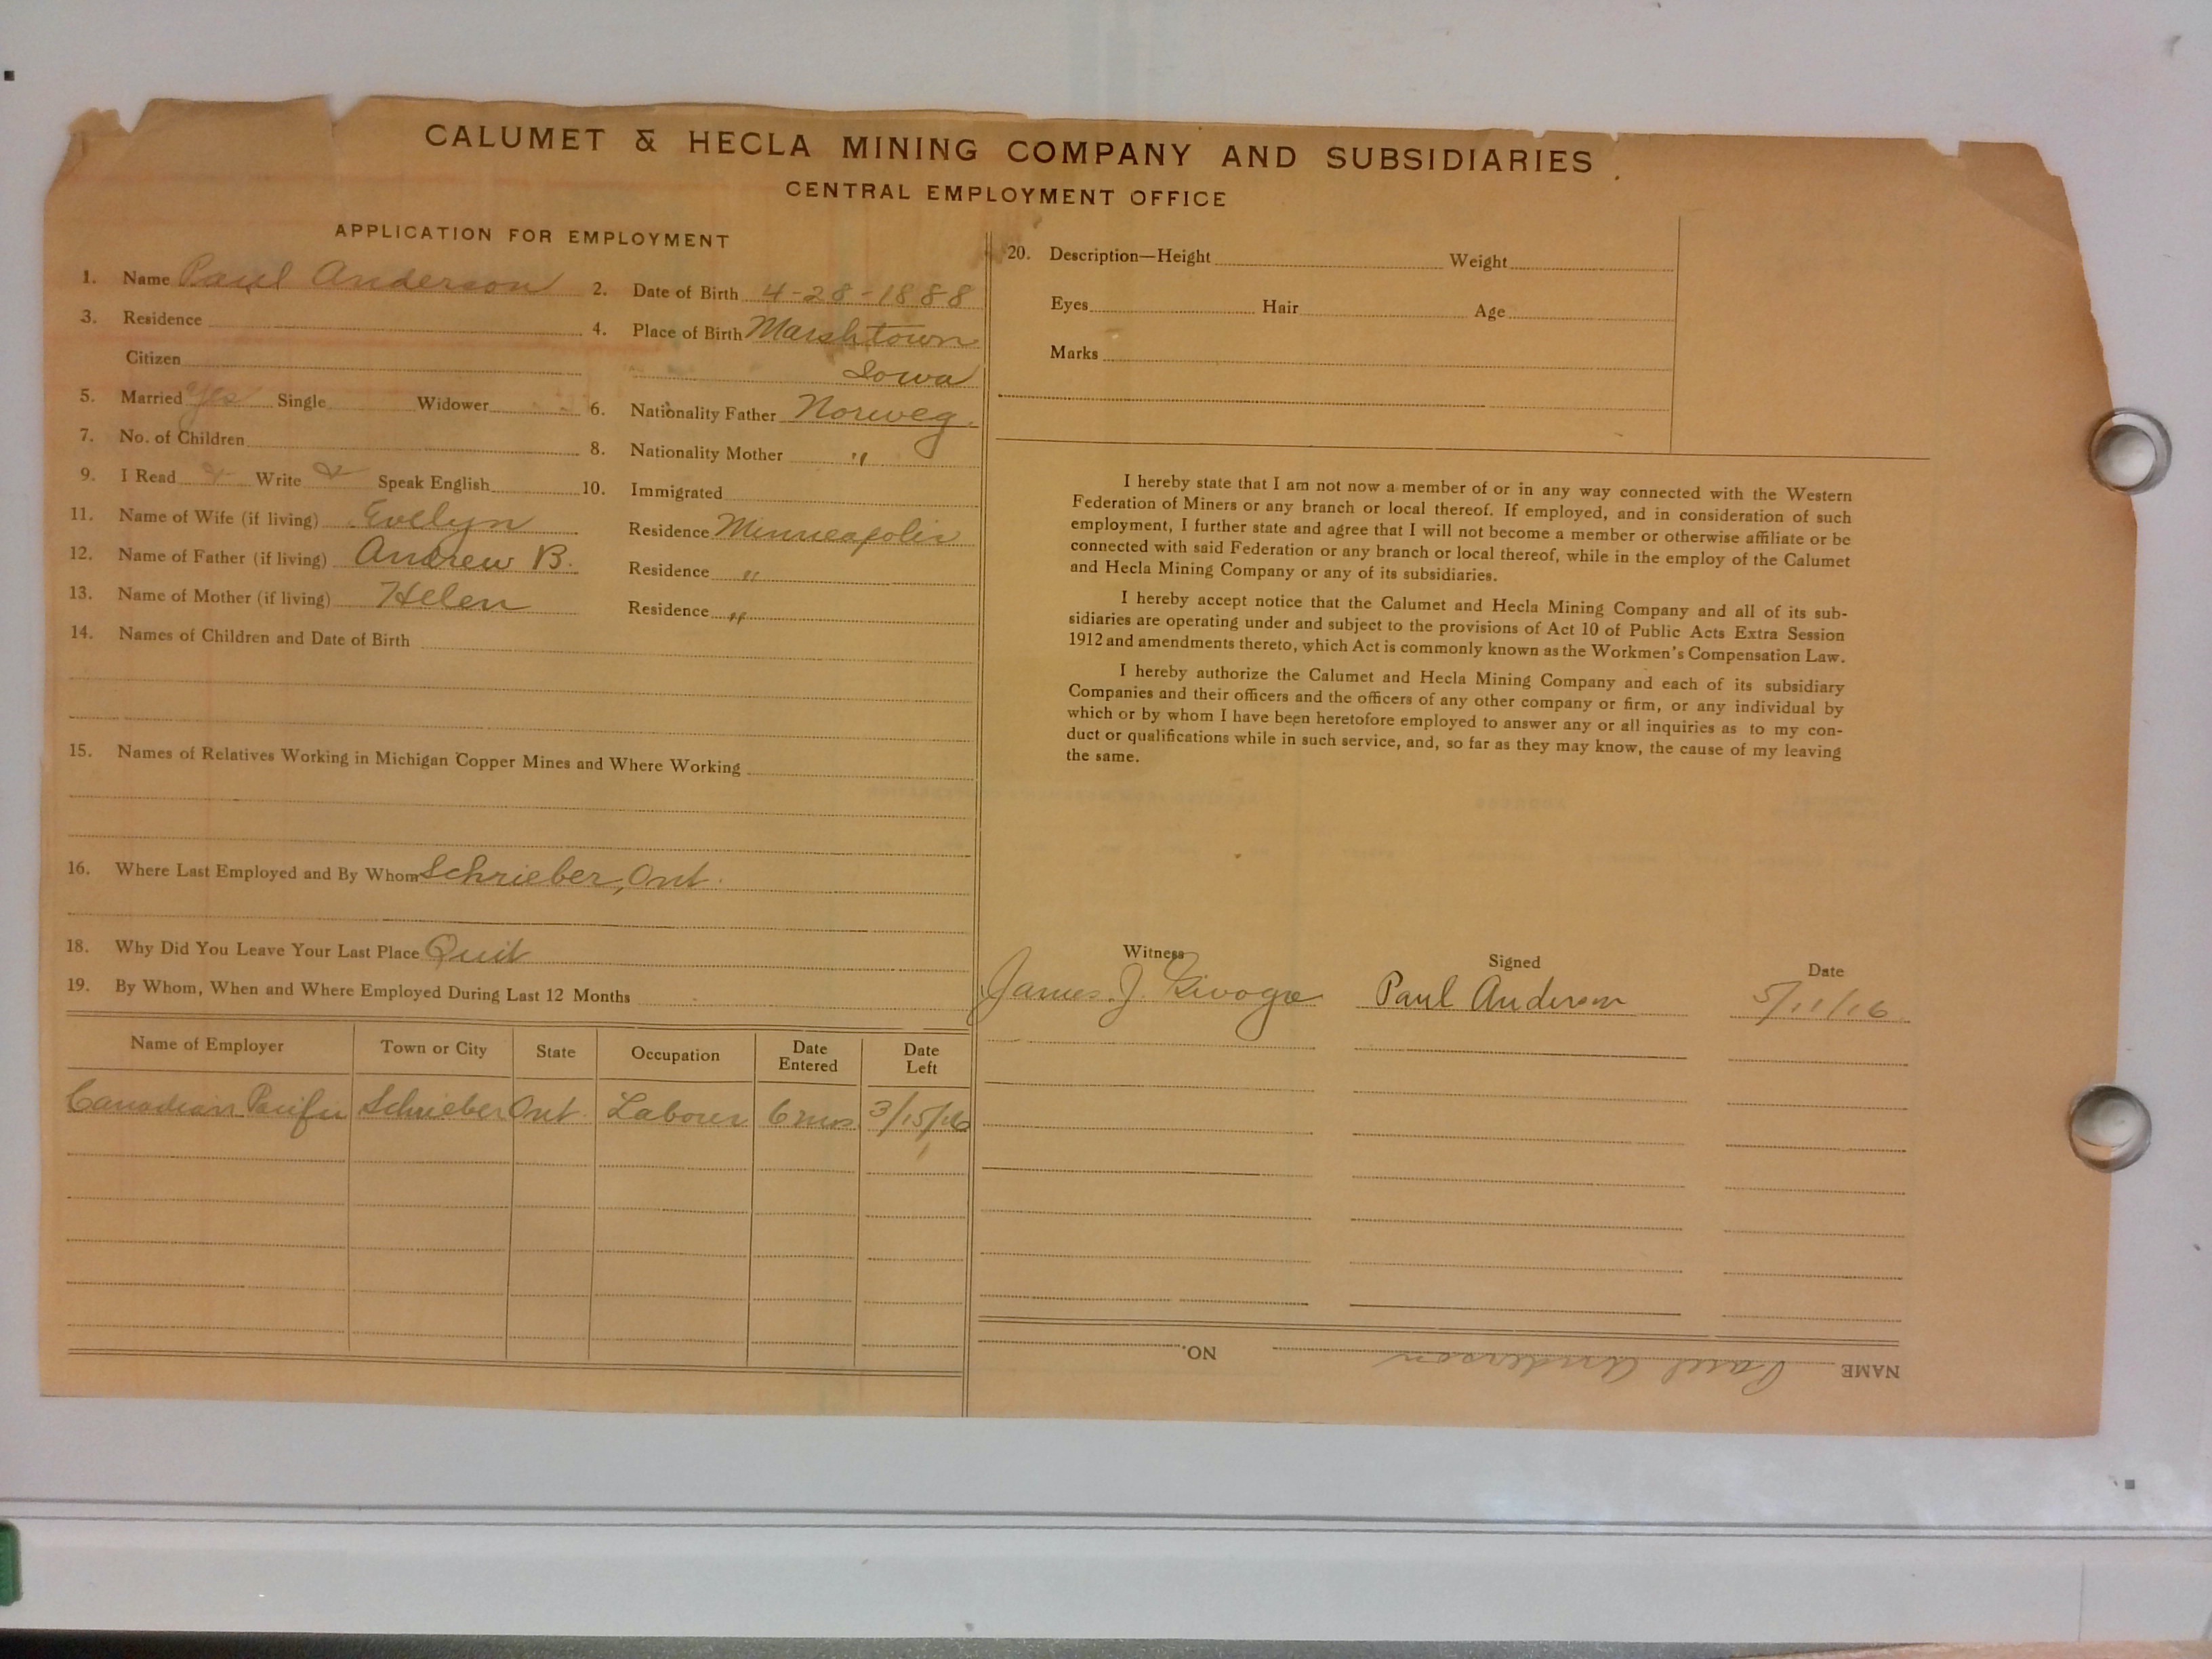 CALUMET & HECLA MINING COMPANY AND SUBSIDIARIES
CENTRAL EMPLOYMENT OFFICE
APPLICATION FOR EMPLOYMENT
1. Name Paul Anderson 2. Date of Birth 4-28-1888
3. Residence 4. Place of Birth Marshtown
Citizen Iowa
5. Married Yes Single Widower 6. Nationality Father Norweg.
7. No. of Children 8. Nationality Mother "
9. I Read Write Speak English 10. Immigrated
11. Name of Wife (if living) Evelyn Residence Minneapolis
12. Name of Father (if living) Andrew B. Residence "
13. Name of Mother (if living) Helen Residence "
14. Names of Children and Date of Birth
15. Names of Relatives Working in Michigan Copper Mines and Where Working
16. Where Last Employed and By Whom Schrieber, Ont.
18. Why Did You Leave Your Last Place Quit
19. By Whom, When and Where Employed During Last 12 Months
Name of Employer Town or City State Occupation Date Entered Date Left
Canadian Pacific Schrieber Ont. Labour 6 mos 3/15/16
20. Description—Height Weight
Eyes Hair Age
Marks
I hereby state that I am not now a member of or in any way connected with the Western
Federation of Miners or any branch or local thereof. If employed, and in consideration of such
employment, I further state and agree that I will not become a member or otherwise affiliate or be
connected with said Federation or any branch or local thereof, while in the employ of the Calumet
and Hecla Mining Company or any of its subsidiaries.
I hereby accept notice that the Calumet and Hecla Mining Company and all of its sub-
sidiaries are operating under and subject to the provisions of Act 10 of Public Acts Extra Session
1912 and amendments thereto, which Act is commonly known as the Workmen's Compensation Law.
I hereby authorize the Calumet and Hecla Mining Company and each of its subsidiary
Companies and their officers and the officers of any other company or firm, or any individual by
which or by whom I have been heretofore employed to answer any or all inquiries as to my con-
duct or qualifications while in such service, and, so far as they may know, the cause of my leaving
the same.
Witness Signed Date
James J. Paul Anderson 5/11/16
NAME Paul Anderson NO.